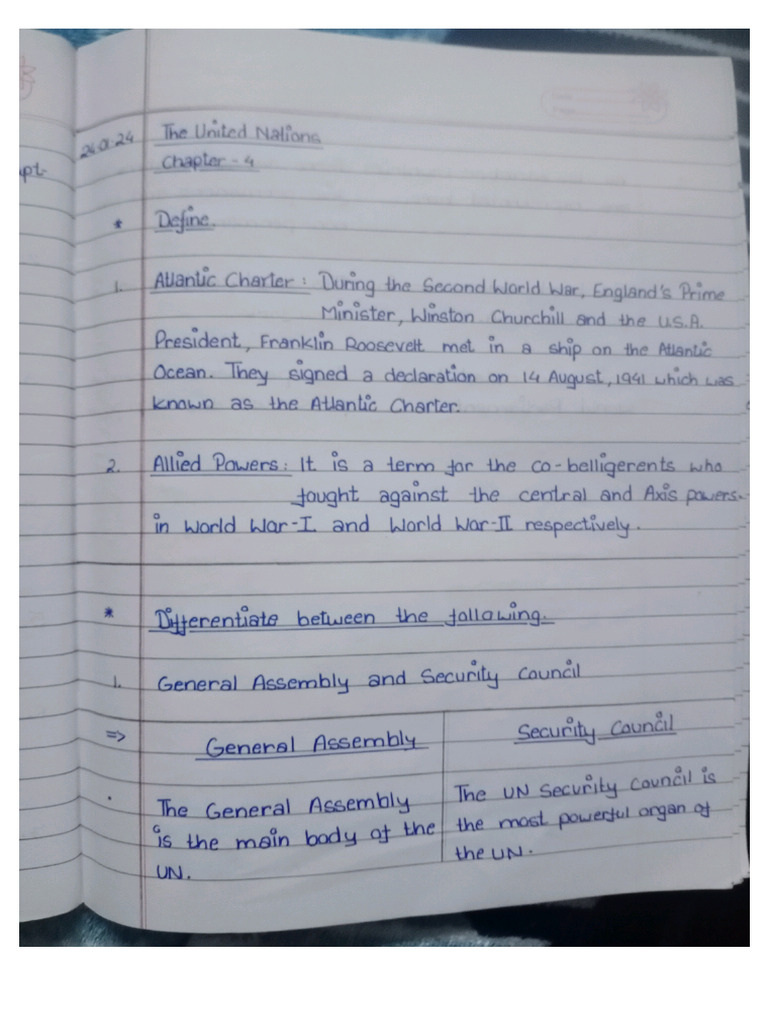 pt-
24-01-24 The United Nations
Chapter - 4
* Define.
1. Atlantic Charter : During the Second World War, England's Prime
Minister, Winston Churchill and the U.S.A.
President, Franklin Roosevelt met in a ship on the Atlantic
Ocean. They signed a declaration on 14 August, 1941 which was
known as the Atlantic Charter.
2. Allied Powers : It is a term for the co-belligerents who
fought against the central and Axis powers
in World War-I and World War-II respectively.
* Differentiate between the following.
1. General Assembly and Security Council
=> General Assembly
Security Council
. The General Assembly
is the main body of the
UN.
The UN Security Council is
the most powerful organ of
the UN.